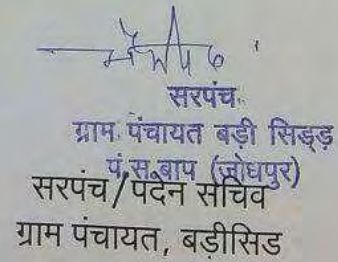 सरपंच
ग्राम पंचायत बड़ी सिड्ड़
पं.स.बाप (जोधपुर)
सरपंच/पदेन सचिव
ग्राम पंचायत, बड़ीसिड